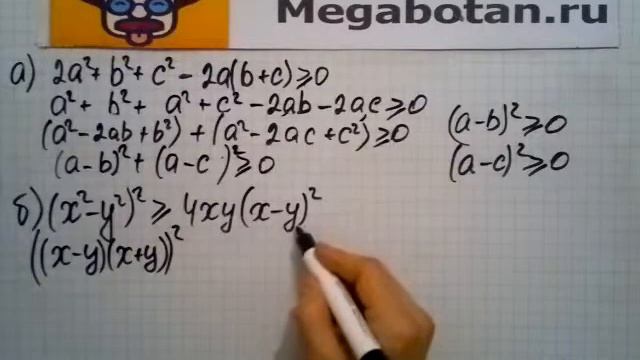 Megabotan.ru
а) 2a² + b² + c² - 2a(b+c) ≥ 0
a² + b² + a² + c² - 2ab - 2ac ≥ 0
(a² - 2ab + b²) + (a² - 2ac + c²) ≥ 0
(a-b)² ≥ 0
(a-b)² + (a-c)² ≥ 0
(a-c)² ≥ 0
б) (x² - y²)² ≥ 4xy(x-y)²
((x-y)(x+y))²